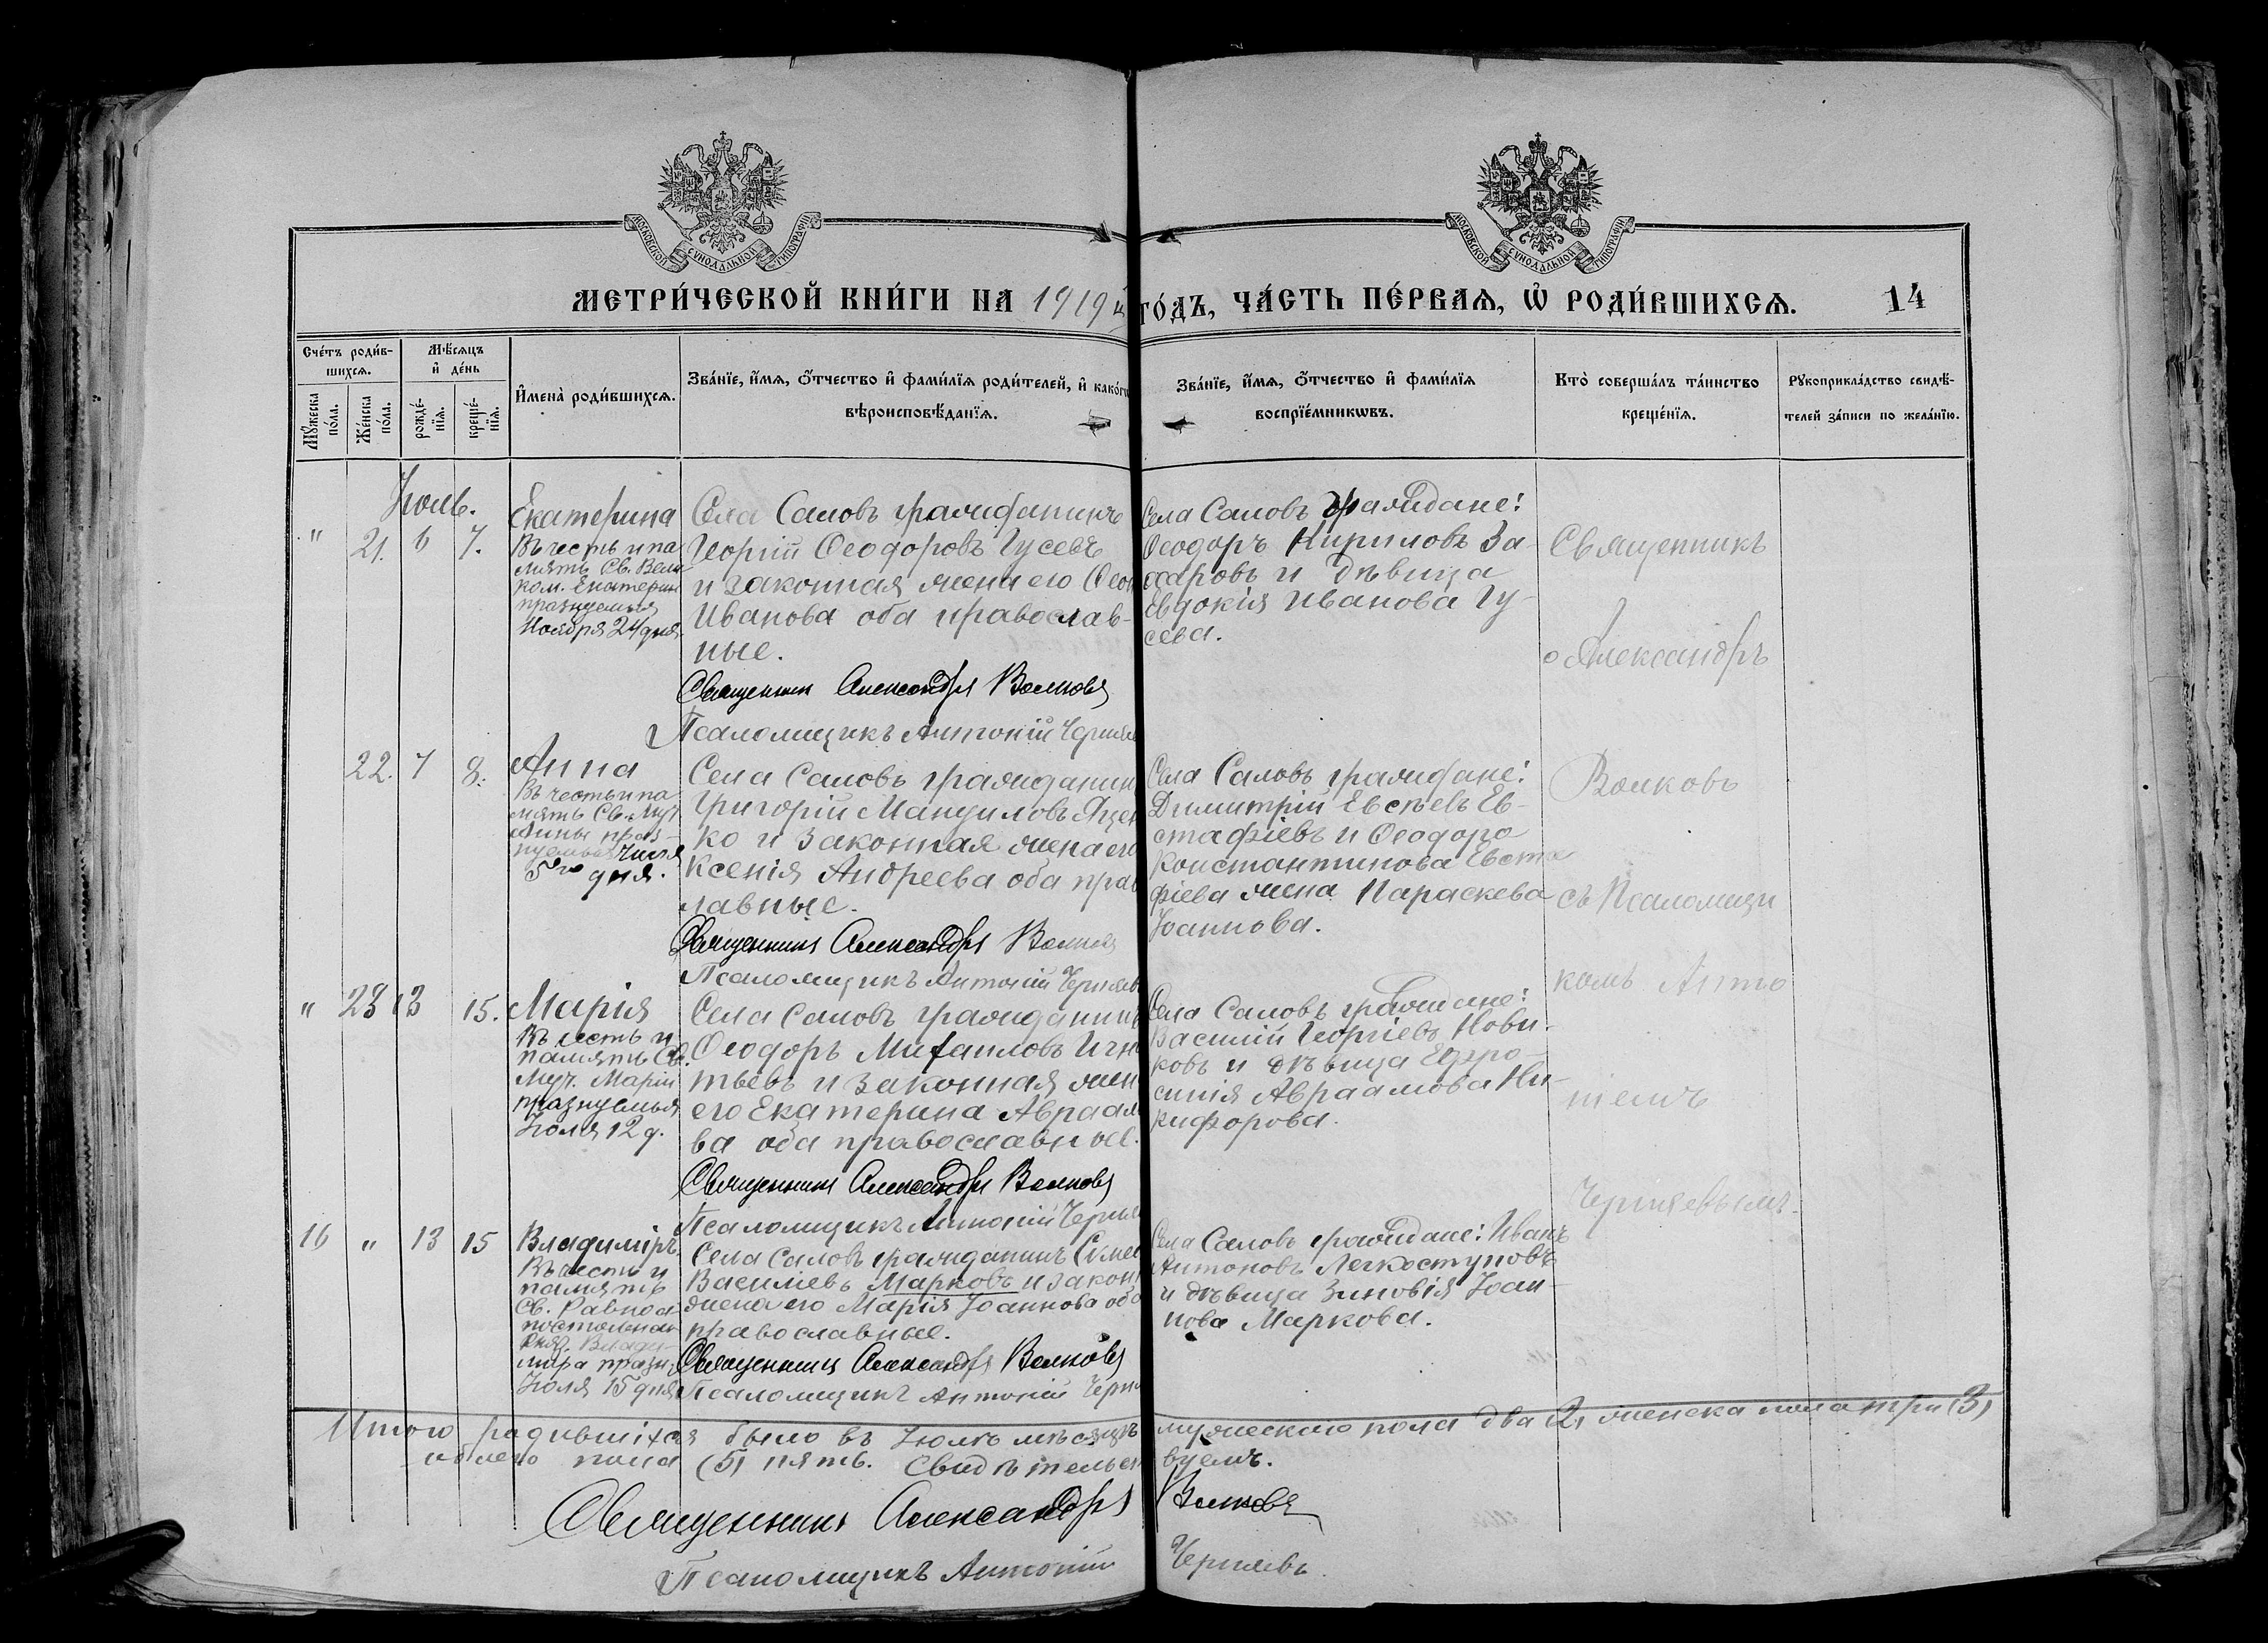 МОСКОВСКОЙ СѴНОДАЛЬНОЙ ТИПОГРАФІИ
МОСКОВСКОЙ СѴНОДАЛЬНОЙ ТИПОГРАФІИ
МЕТРИ́ЧЕСКОЙ КНИ́ГИ НА 1919й ГО́ДЪ, ЧА́СТЬ ПЕ́РВАѦ, Ѡ РОДИ́ВШИХСѦ. 14
Сче́тъ роди́в-
шихсѧ.
Мꙋжеска по́ла.
Же́нска по́ла.
Мѣ́сѧцъ
и де́нь
рожде́-
нїѧ.
креще́-
нїѧ.
Имена̀ роди́вшихсѧ.
Зва́нїе, и́мѧ, о́тчество и фами́лїѧ роди́телей, и како́гѡ
вѣроисповѣ́данїѧ.
Зва́нїе, и́мѧ, о́тчество и фами́лїѧ
воспрїе́мникѡвъ.
Кто̀ соверша́лъ та́инство
креще́нїѧ.
Рꙋкоприкла́дство свидѣ́-
телей за́писи по жела́нїю.
Іюль.
" 21. 6 7.
Екатерина
Въ честь и па
мять Св. Вели
ком. Екатерин
празнуемыя
Ноября 24 дня.
Села Саловъ гражданинъ
Георгій Ѳеодоровъ Гусевъ
и законная жена его
Иванова оба православ-
ные.
Священник Александръ Волковъ
Псаломщикъ Антоній Черняев
Села Саловъ граждане:
Ѳеодоръ Кириловъ За-
харовъ и дѣвица
Евдокія Иванова Гу-
сева.
Священникъ
Александръ
Волковъ
съ Псаломщи
комъ Анто
ніемъ
Черняевымъ.
22. 7 8.
Анна
Въ честь и па
мять Св. Муч
Анны праз-
нуемыя Іюля
5го дня.
Села Саловъ гражданин
Григорій Мануиловъ Яцен
ко и законная жена его
Ксенія Андреева оба прав
лавные.
Священникъ Александръ Волковъ
Псаломщикъ Антоній Черняевъ
Села Саловъ граждане:
Димитрій Евсѣевъ Ев-
стафіевъ и Ѳеодора
Константинова Евста
фіева жена Параскева
Іоаннова.
" 23 13 15.
Марія
Въ честь и
память Св.
Муч. Маріи
празнуемыя
Іюля 12 д.
Села Саловъ гражданинъ
Ѳеодоръ Михаиловъ Игна
тьевъ и законная жен
его Екатерина Авраам
ва оба православные.
Священникъ Александръ Волковъ
Псаломщикъ Антоній Черня
Села Саловъ граждане:
Василій Георгіевъ Нови-
ковъ и дѣвица Ефро-
синія Авраамова Ни-
кифорова.
16 " 13 15
Владиміръ
Въ честь и
память
Св. Равноа
постольнаго
Княз. Влади-
мира празн.
Іюля 15 дня
Села Саловъ гражданинъ
Василіевъ Марковъ и закон
жена его Марія Іоаннова оба
православные.
Священникъ Александръ Волковъ
Псаломщикъ Антоній Черня
Села Саловъ граждане: Иванъ
Антоновъ Легкоступовъ
и дѣвица Зиновія Іоан-
нова Маркова.
Итого родившихся было въ Іюлѣ мѣсяцѣ мужескаго пола два 2, женска пола три (3)
обоего пола (5) пять. Свидѣтельствуемъ.
Священникъ Александръ Волковъ
Псаломщикъ Антоній Черняевъ.